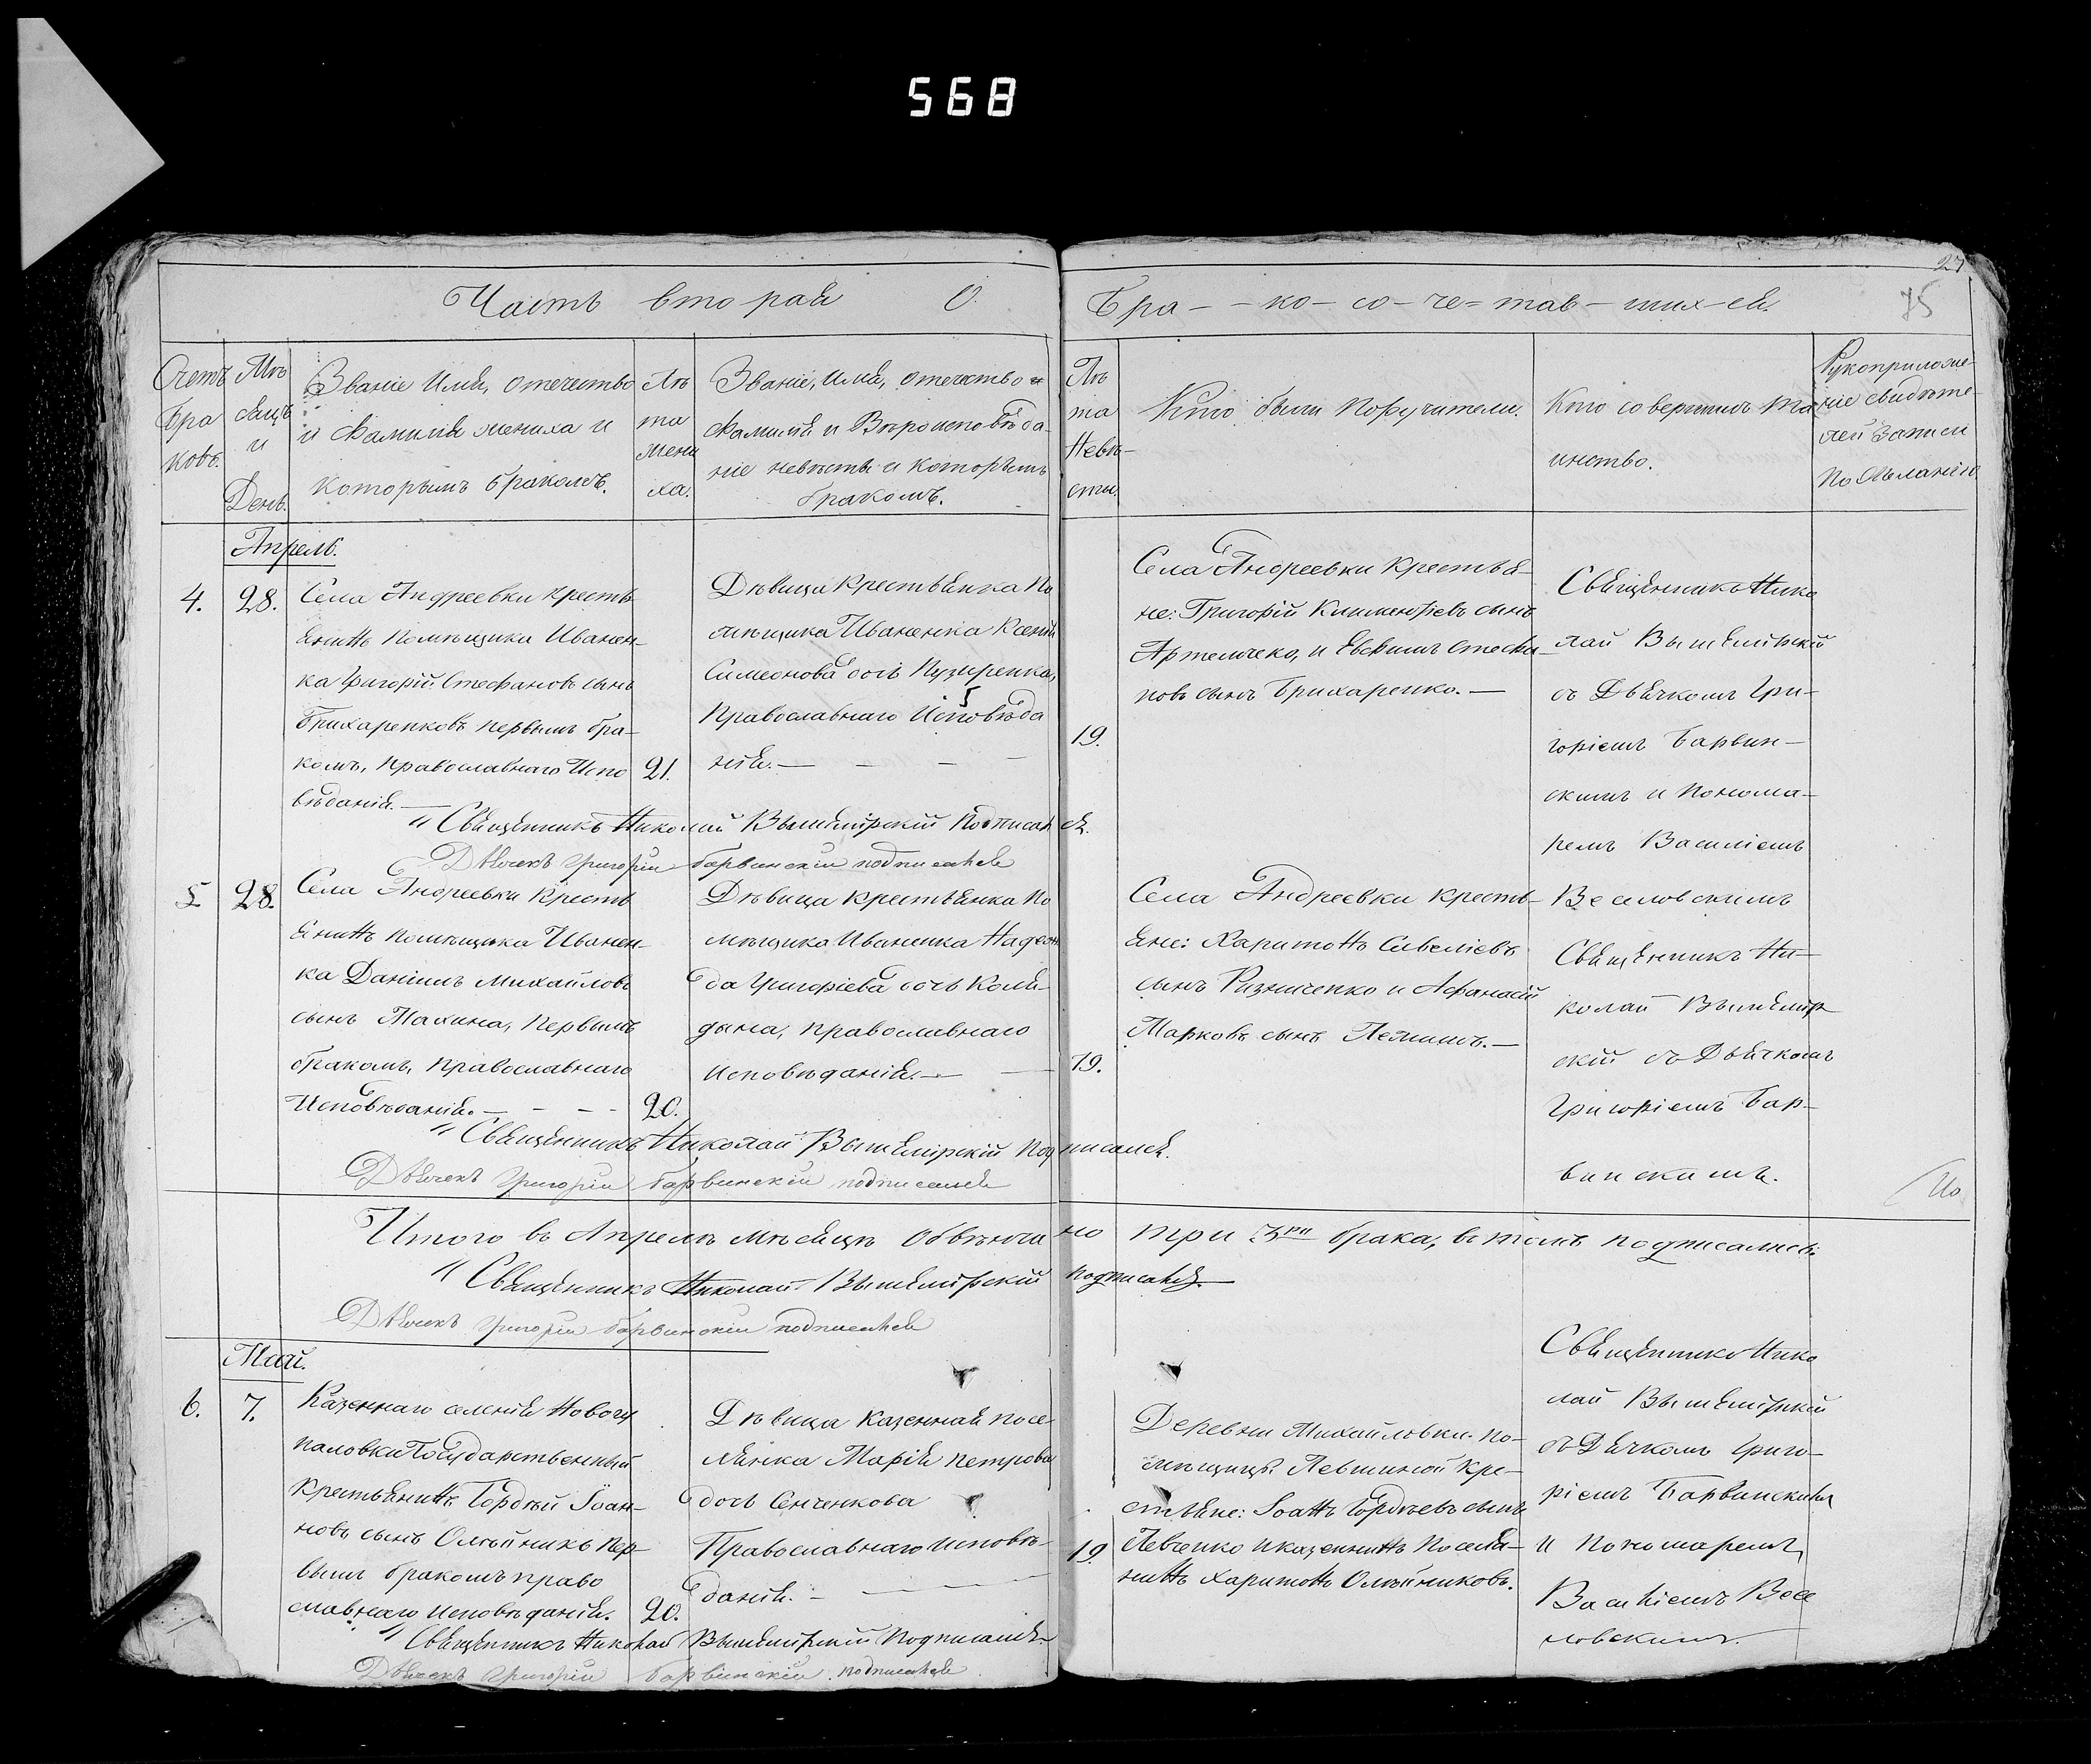 568
27
75
Часть вторая О
Бра- - ко- со- че- тав- ших- ся.
Счетъ Бра ковъ.
Мѣ сяцъ и День.
Званіе Имя, отечество
и Фамилія жениха и
которымъ бракомъ.
Лѣ
та
жени
ха.
Званіе, имя, отечество и
Фамилія и Вѣроисповѣда-
ніе невѣсты и которымъ
бракомъ.
Лѣ
та
Невѣ-
сты.
Кто были Поручители.
Кто совершилъ Та
инство.
Рукоприложе-
ніе свидѣте-
лей Записи
По Желанію
Апрель.
4.
28.
Села Андреевки кресть
янинъ Помѣщика Иванен-
ка Григорій Стефановъ сынъ
Брихаренковъ первымъ бра-
комъ, православнаго Испо
вѣданія.—
21.
Дѣвица Крестьянка По
мѣщика Иваненка Ксенія
Симеонова дочь Пузиренка,
Православнаго Исповѣда
нія.— — — —
19.
Села Андреевки Крестья-
не: Григорій Климентіевъ сынъ
Артемчеко, и Евфимъ Стефа-
новъ сынъ Брихаренко.—
Священникъ Нико
лай Вышемірскій
съ Дьячкомъ Гри-
горіемъ Барвин-
скимъ и Понома-
ремъ Василіемъ
Веселовскимъ
"Священникъ Николай Вышемірскій Подписался.
Дьячекъ Григорій Барвинскій подписался
5
28.
Села Андреевки Кресть
янинъ помѣщика Иванен-
ка Даніилъ Михайловъ
сынъ Махина, Первымъ
бракомъ, Православнаго
Исповѣданія.— - - -
20.
Дѣвица крестьянка По
мѣщика Иваненка Надеж
да Григоріева дочь Коля-
дына, православнаго
Исповѣданія.— —
19.
Села Андреевки кресть-
яне: Харитонъ Савеліевъ
сынъ Ризниченко и Афанасій
Марковъ сынъ Лемишъ.—
Священникъ Ни-
колай Вышемір
скій съ Дьячкомъ
Григоріемъ Бар-
винскимъ.
"Священникъ Николай Вышемірскій Подписался.
Дьячекъ Григорій Барвинскій подписался
По
Итого въ Апрелѣ мѣсяцѣ Обвѣнча но три 3ри брака, въ томъ подписались:
"Священникъ Николай Вышемірскій подписался.—
Дьячекъ Григорій Барвинскій подписался
Май.
6.
7.
Казеннаго селенія Новогу
паловки Государственный
Крестьянинъ Гордѣй Іоан-
новъ сынъ Олѣйникъ Пер-
вымъ бракомъ право
славнаго исповѣданія.
20.
Дѣвица казенная посе-
лянка Марія петрова
дочь Сенченкова
Православнаго исповѣ-
данія.—
19
Деревни Михайловки по-
мѣщицы Левшиной Кре-
стьяне: Іоанъ Гордѣевъ сынъ
Левченко и казенинъ Поселя-
нинъ Харитонъ Олѣйниковъ.
Священникъ Нико
лай Вышемірскій
съ Дячкомъ Григо-
ріемъ Барвинскимъ
и Пономаремъ
Василіемъ Весе
ловскимъ.
"Священникъ Николай Вышемірскій Подписался
Дьячекъ Григорій Барвинскій подписался